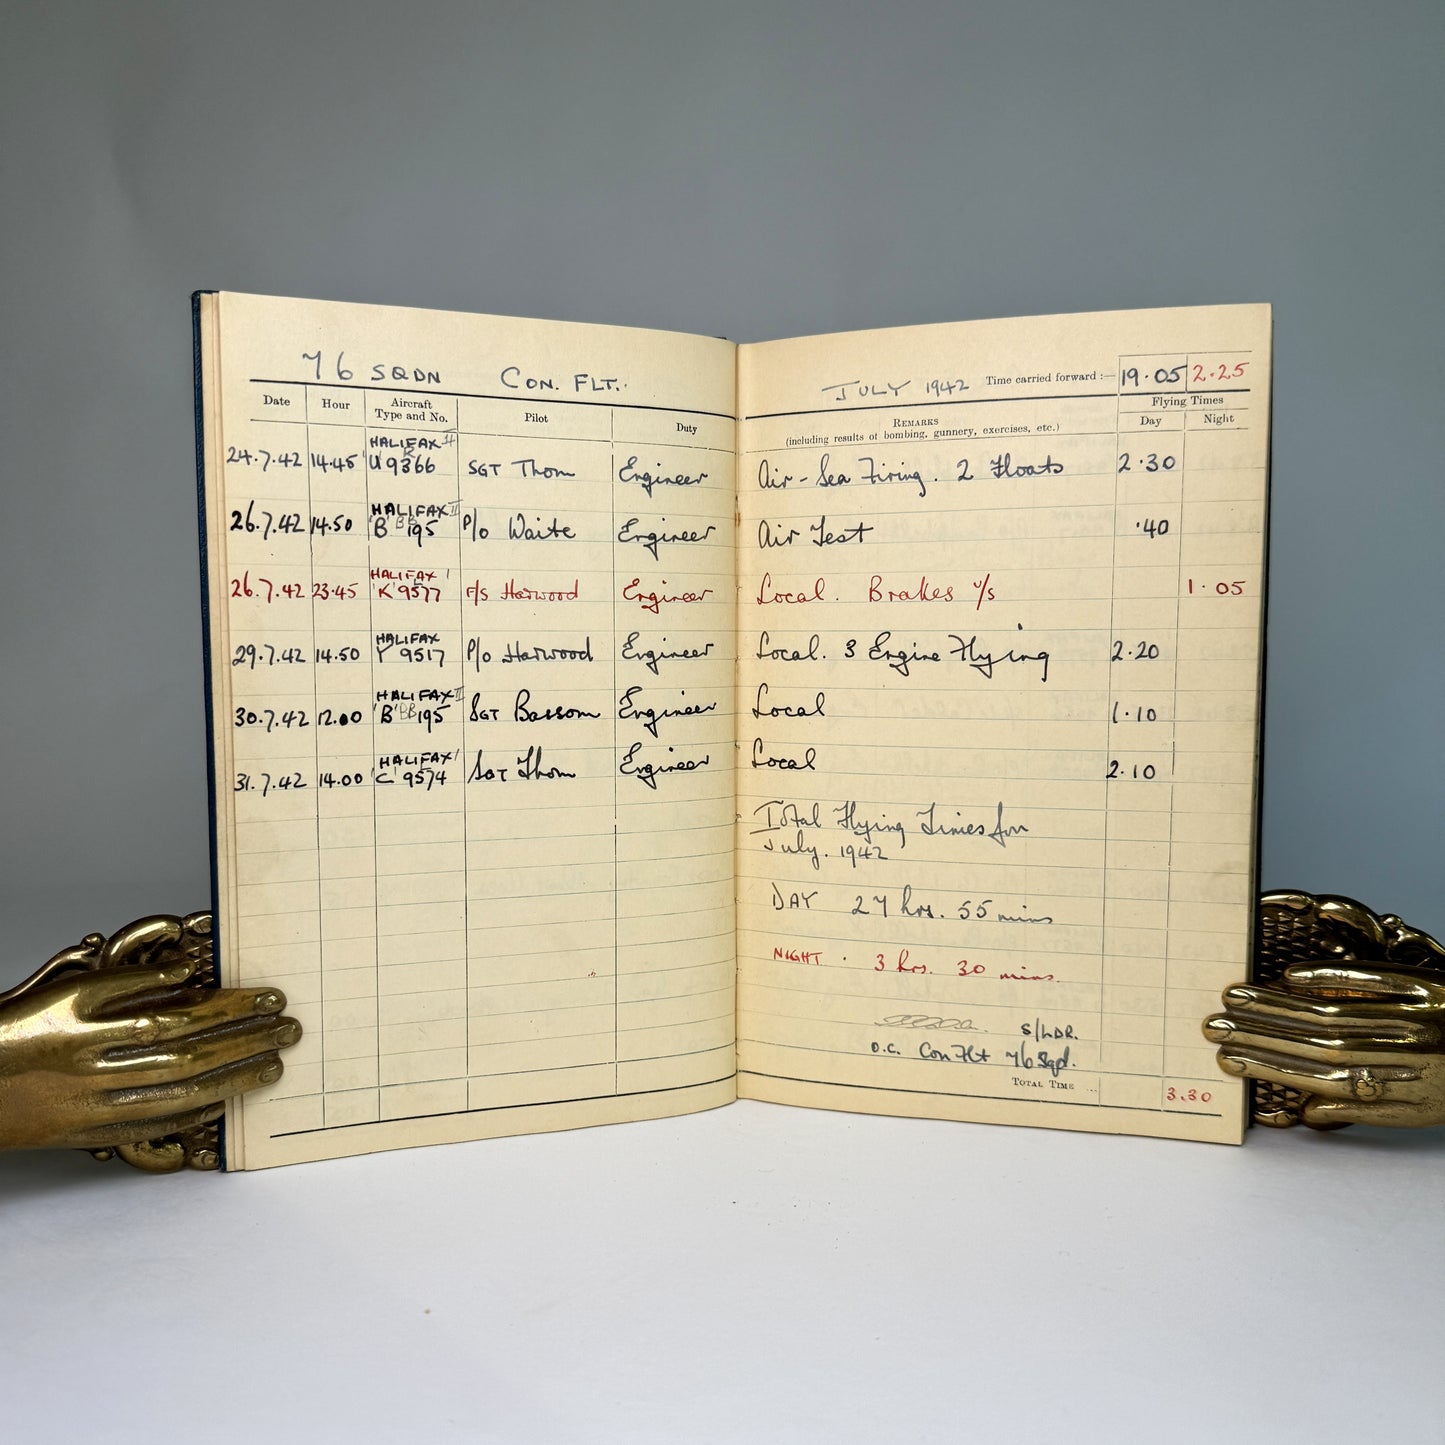 76 SQDN CON. FLT.
Date Hour Aircraft Type and No. Pilot Duty
24.7.42 14.45 HALIFAX II 'U' 9366 SGT Thom Engineer
26.7.42 14.50 HALIFAX II 'B' BB 195 P/o Waite Engineer
26.7.42 23.45 HALIFAX 'K' 9577 F/S Harwood Engineer
29.7.42 14.50 HALIFAX Y 9517 P/o Harwood Engineer
30.7.42 12.00 HALIFAX II 'B' BB 195 SGT Bassom Engineer
31.7.42 14.00 HALIFAX 'C' 9574 SGT Thom Engineer
JULY 1942 Time carried forward :— 19.05 2.25
REMARKS
(including results of bombing, gunnery, exercises, etc.)
Flying Times
Day Night
Air-Sea Firing. 2 Floats 2.30
Air Test .40
Local. Brakes u/s 1.05
Local. 3 Engine Flying 2.20
Local 1.10
Local 2.10
Total Flying Times for
July. 1942
DAY 27 hrs. 55 mins
NIGHT. 3 hrs. 30 mins.
S/LDR.
O.C. Con Flt 76 Sqd.
TOTAL TIME ... 3.30